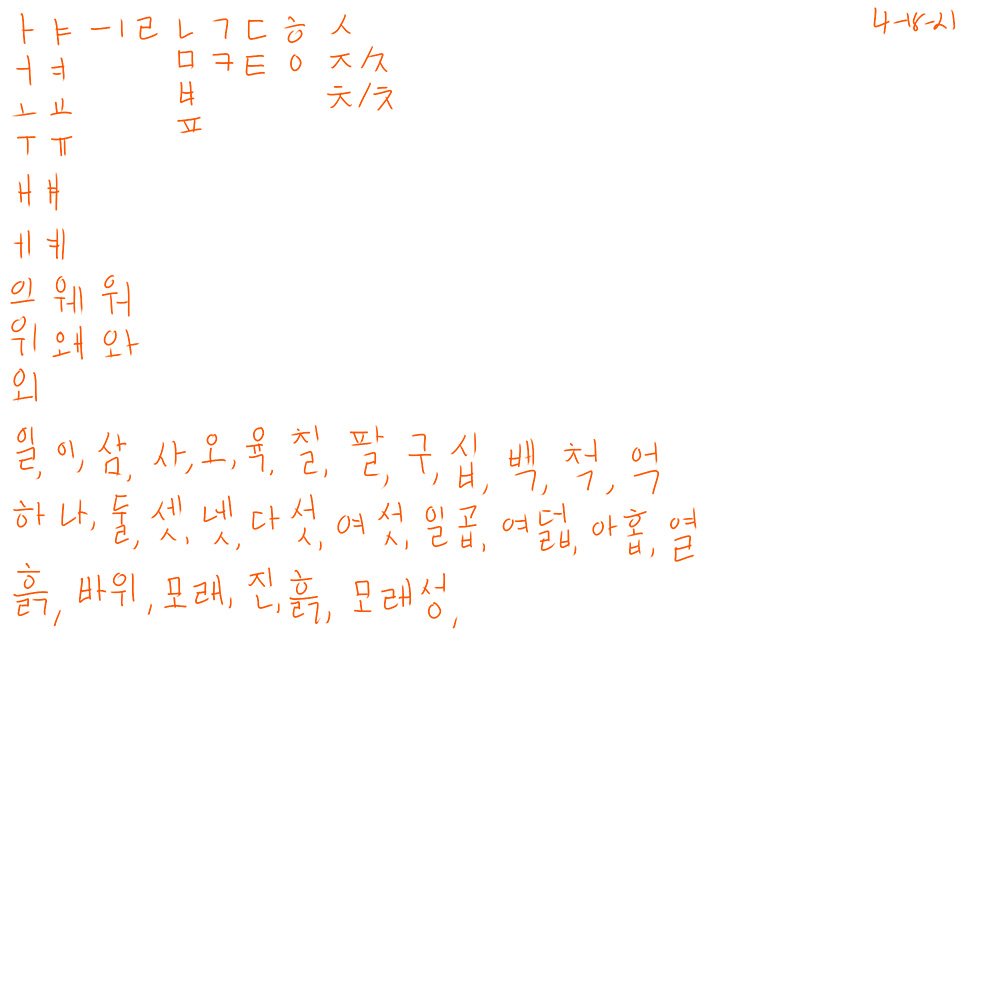 ㅏ ㅑ ㅡ ㅣ ㄹ ㄴ ㄱ ㄷ ㅎ ㅅ 4-18-21
ㅓ ㅕ ㅁ ㅋ ㅌ ㅇ ㅈ/ㅈ
ㅗ ㅛ ㅂ ㅊ/ㅊ
ㅜ ㅠ ㅍ
ㅐ ㅒ
ㅔ ㅖ
의 웨 워
위 왜 와
외
일, 이, 삼, 사, 오, 육, 칠, 팔, 구, 십, 백, 척, 억
하나, 둘, 셋, 넷, 다섯, 여섯, 일곱, 여덟, 아홉, 열
흙, 바위, 모래, 진,흙, 모래성,